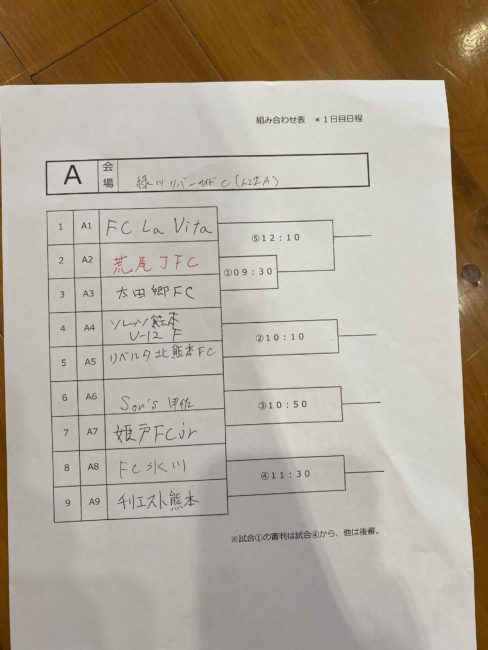 組み合わせ表 *1日目日程
A 会場 緑川リバーサイドC(人工芝A)
1 A1 FC La Vita
⑤12:10
2 A2 荒尾JFC
①09:30
3 A3 太田郷FC
4 A4 ソレッソ熊本 U-12 F
②10:10
5 A5 リベルタ北熊本FC
6 A6 Son's 甲佐
③10:50
7 A7 姫戸FCjr
8 A8 FC氷川
④11:30
9 A9 チリエスト熊本
※試合①の審判は試合④から、他は後審。